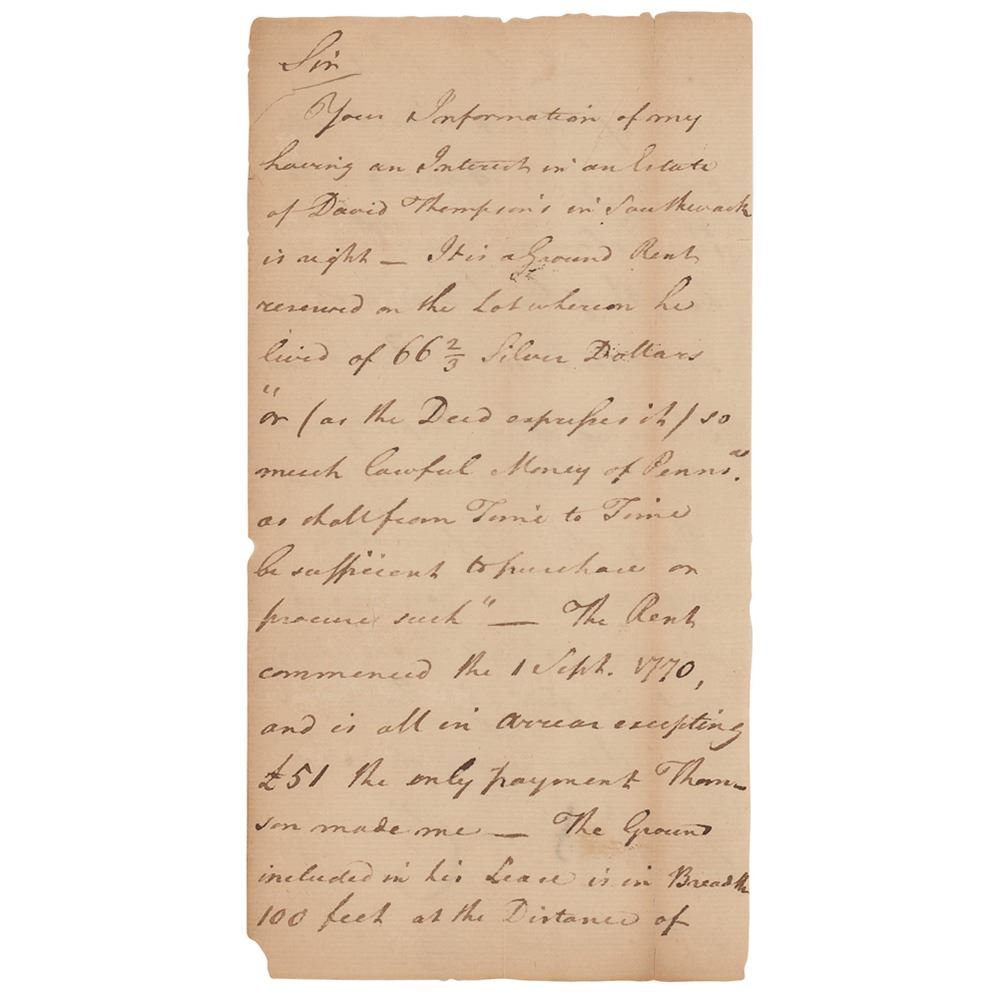 Sir
Your Information of my
having an Interest in an Estate
of David Thompson's in Southwark
is right — It is a Ground Rent
reserved on the Lot whereon he
lived of 66 2/3 Silver Dollars
"or (as the Deed expresses it) so
much lawful Money of Pennsᵃ.
as shall from Time to Time
be sufficient to purchase or
procure such" — The Rent
commenced the 1 Sept. 1770,
and is all in Arrear excepting
£51 the only payment Thom-
son made me — The Ground
included in his Lease is in Breadth
100 feet at the Distance of